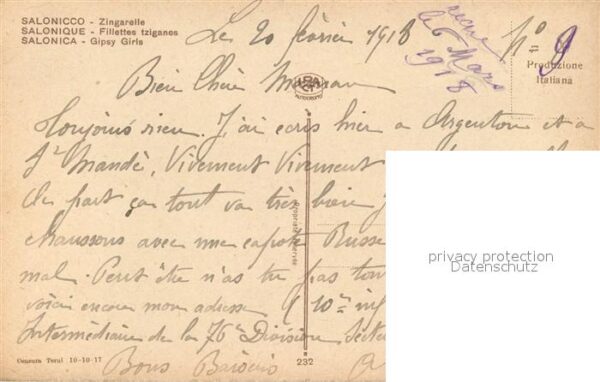 SALONICCO - Zingarelle
SALONIQUE - Fillettes tziganes
SALONICA - Gipsy Girls
Le 20 février 1918
reçue
le 6 Mars
1918
N° 9
Produzione
Italiana
Bien Chère Maman
Toujours rien. J'ai ecris hier a Argenton et a
St Mandé, Vivement Vivement
De part ça tout va très bien
chaussons avec une capote Russe
mal. Peut être n'as tu pas
voici encore mon adresse (10e inf
Intermédiaire de la 76e Division
Bons Baisers
Censura Torul 10-10-17
232
privacy protection
Datenschutz